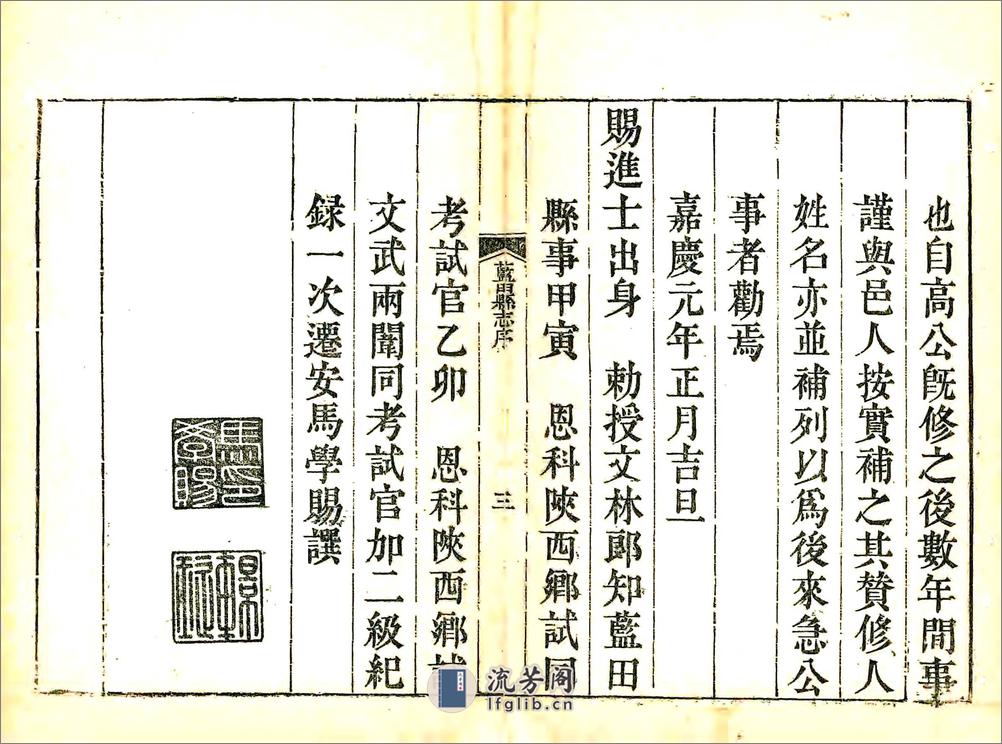 也自高公旣修之後數年間事
謹與邑人按實補之其贊修人
姓名亦並補列以爲後來急公
事者勸焉
嘉慶元年正月吉旦
賜進士出身　勅授文林郎知藍田
縣事甲寅　恩科陝西鄉試同
藍田縣志序
三
考試官乙卯　恩科陝西鄉試
文武兩闈同考試官加二級紀
録一次遷安馬學賜譔
馬學賜印
流芳阁
lfglib.cn